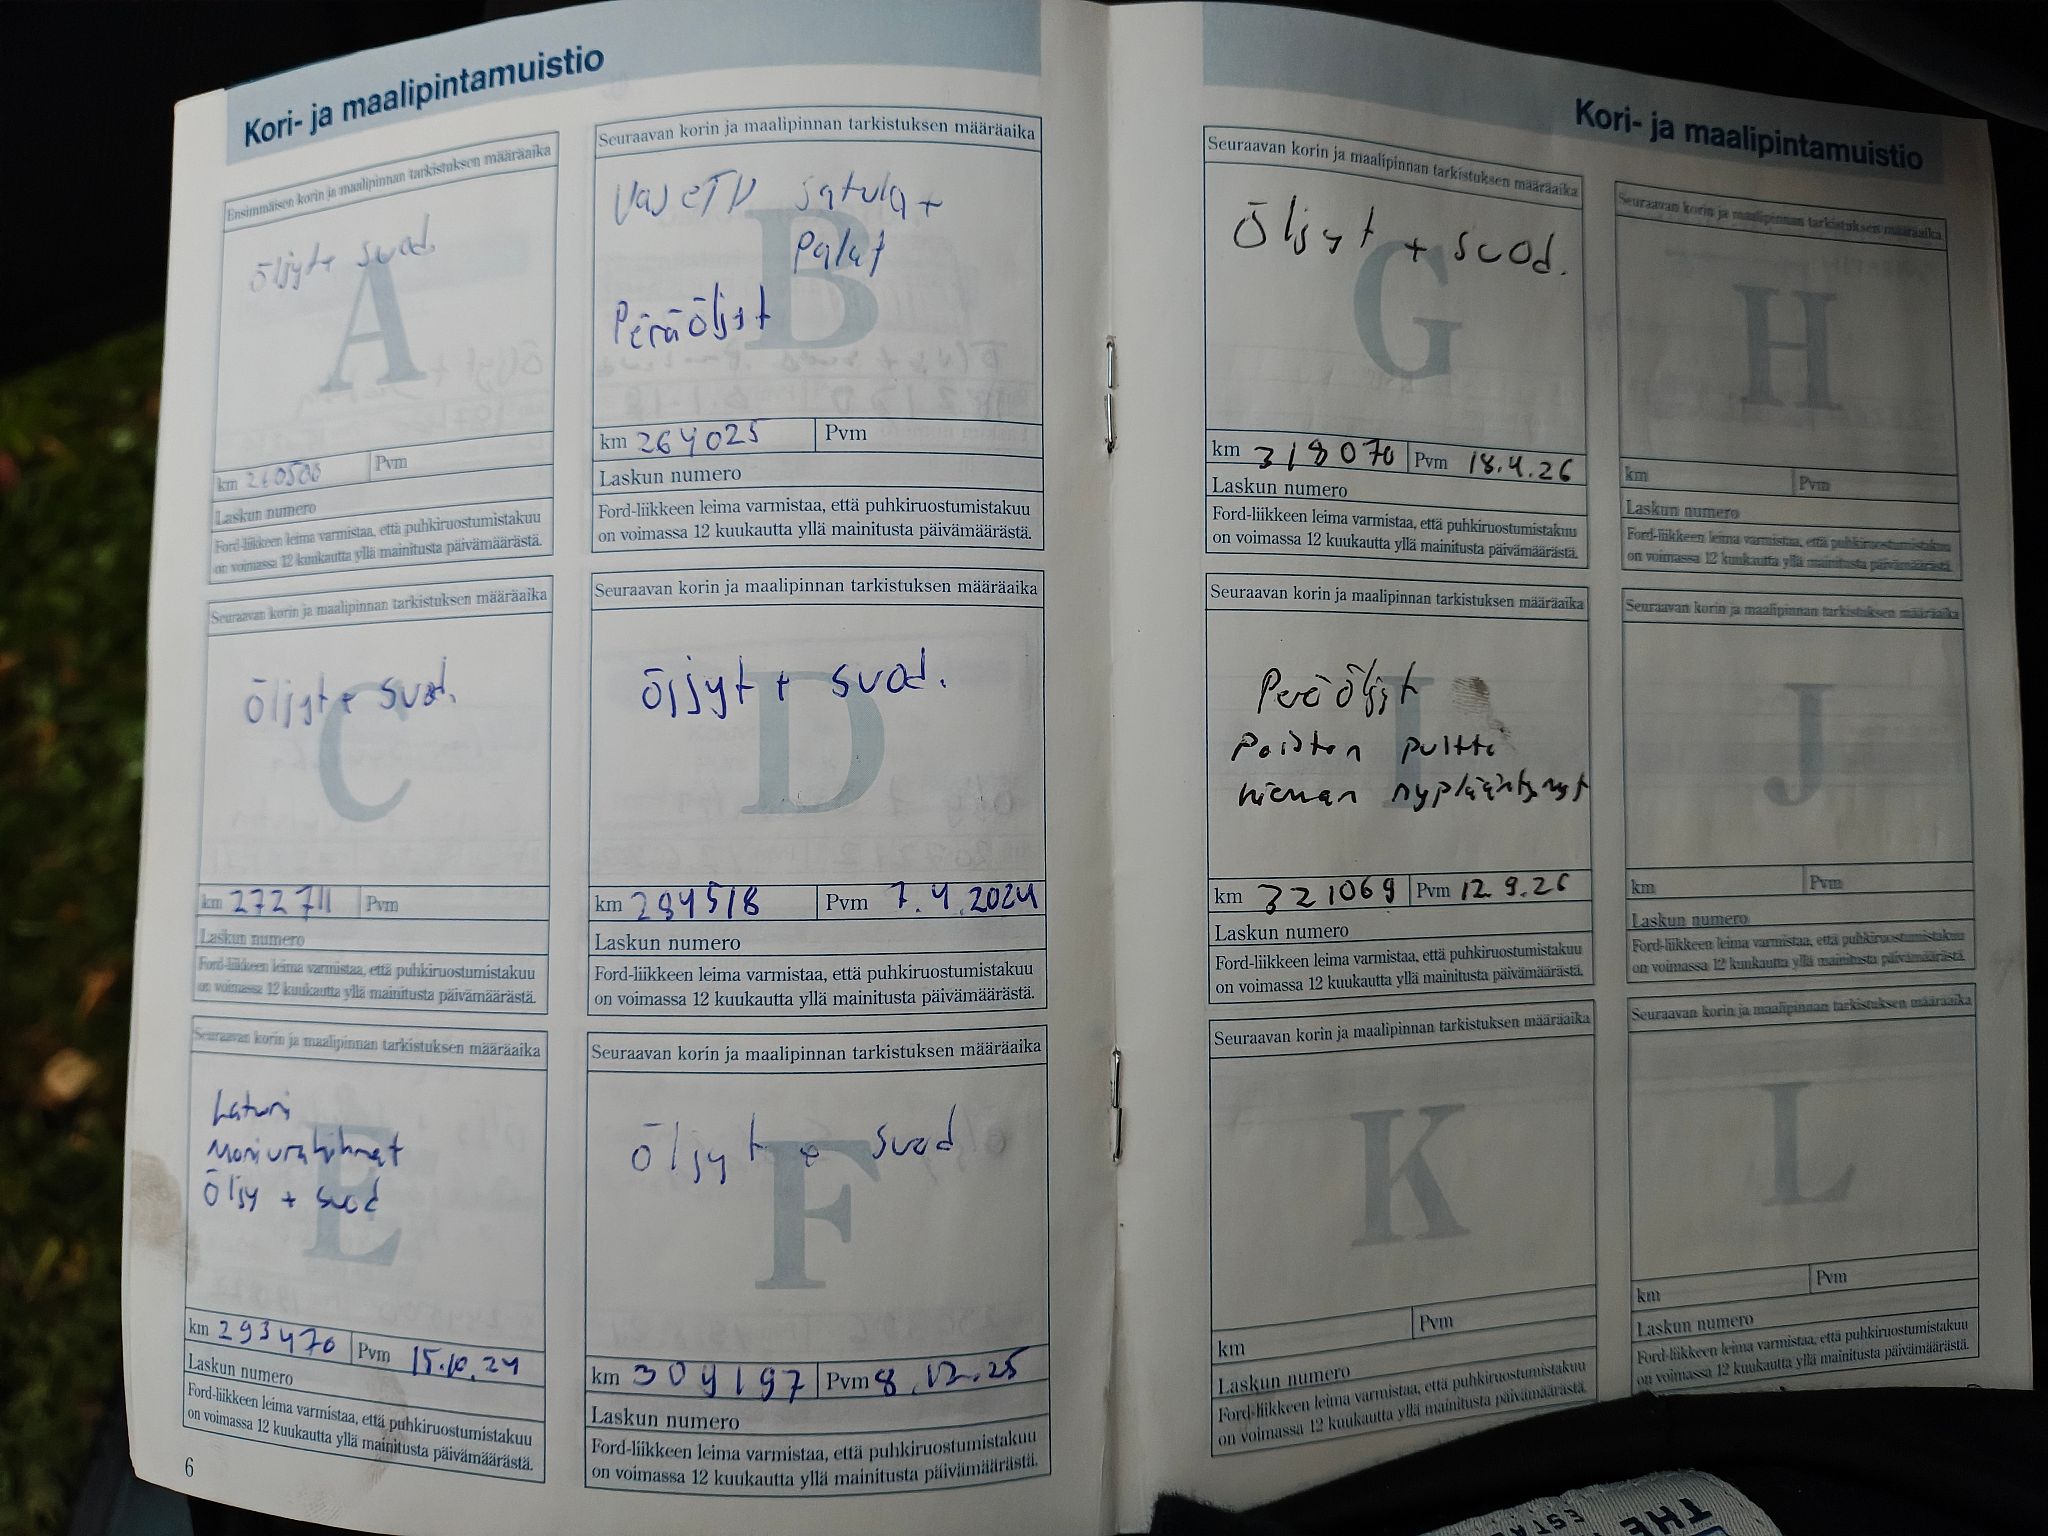 Kori- ja maalipintamuistio
Ensimmäisen korin ja maalipinnan tarkistuksen määräaika
öljyt+ suod.
A
km 260500 Pvm
Laskun numero
Ford-liikkeen leima varmistaa, että puhkiruostumistakuu
on voimassa 12 kuukautta yllä mainitusta päivämäärästä.
Seuraavan korin ja maalipinnan tarkistuksen määräaika
satula +
palat
Peräöljyt
B
km 264025 Pvm
Laskun numero
Ford-liikkeen leima varmistaa, että puhkiruostumistakuu
on voimassa 12 kuukautta yllä mainitusta päivämäärästä.
Seuraavan korin ja maalipinnan tarkistuksen määräaika
öljyt + suod.
C
km 272711 Pvm
Laskun numero
Ford-liikkeen leima varmistaa, että puhkiruostumistakuu
on voimassa 12 kuukautta yllä mainitusta päivämäärästä.
Seuraavan korin ja maalipinnan tarkistuksen määräaika
öjjyt + suod.
D
km 284518 Pvm 7.4.2024
Laskun numero
Ford-liikkeen leima varmistaa, että puhkiruostumistakuu
on voimassa 12 kuukautta yllä mainitusta päivämäärästä.
Seuraavan korin ja maalipinnan tarkistuksen määräaika
Laturi
Moniurahihnat
Öljy + suod
E
km 293470 Pvm 15.10.24
Laskun numero
Ford-liikkeen leima varmistaa, että puhkiruostumistakuu
on voimassa 12 kuukautta yllä mainitusta päivämäärästä.
Seuraavan korin ja maalipinnan tarkistuksen määräaika
öljyt + suod
F
km 304197 Pvm 8.12.25
Laskun numero
Ford-liikkeen leima varmistaa, että puhkiruostumistakuu
on voimassa 12 kuukautta yllä mainitusta päivämäärästä.
6
Kori- ja maalipintamuistio
Seuraavan korin ja maalipinnan tarkistuksen määräaika
Öljyt + suod.
G
km 318070 Pvm 18.4.26
Laskun numero
Ford-liikkeen leima varmistaa, että puhkiruostumistakuu
on voimassa 12 kuukautta yllä mainitusta päivämäärästä.
Seuraavan korin ja maalipinnan tarkistuksen määräaika
H
km Pvm
Laskun numero
Ford-liikkeen leima varmistaa, että puhkiruostumistakuu
on voimassa 12 kuukautta yllä mainitusta päivämäärästä.
Seuraavan korin ja maalipinnan tarkistuksen määräaika
Peräöljyt
pultti
hieman
I
km 321069 Pvm 12.9.26
Laskun numero
Ford-liikkeen leima varmistaa, että puhkiruostumistakuu
on voimassa 12 kuukautta yllä mainitusta päivämäärästä.
Seuraavan korin ja maalipinnan tarkistuksen määräaika
J
km Pvm
Laskun numero
Ford-liikkeen leima varmistaa, että puhkiruostumistakuu
on voimassa 12 kuukautta yllä mainitusta päivämäärästä.
Seuraavan korin ja maalipinnan tarkistuksen määräaika
K
km Pvm
Laskun numero
Ford-liikkeen leima varmistaa, että puhkiruostumistakuu
on voimassa 12 kuukautta yllä mainitusta päivämäärästä.
Seuraavan korin ja maalipinnan tarkistuksen määräaika
L
km Pvm
Laskun numero
Ford-liikkeen leima varmistaa, että puhkiruostumistakuu
on voimassa 12 kuukautta yllä mainitusta päivämäärästä.
THE